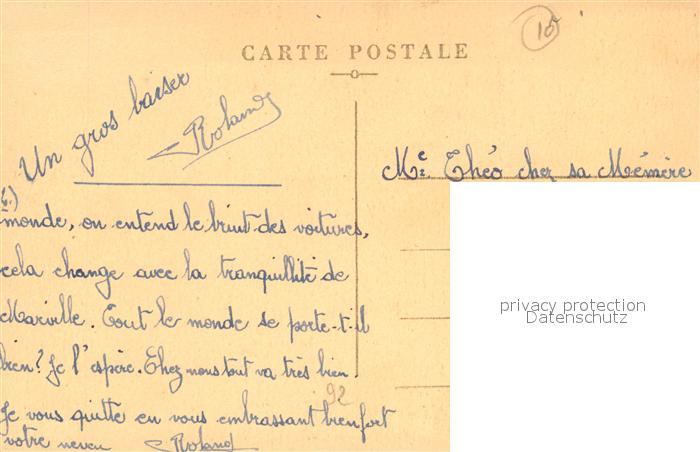 10f
CARTE POSTALE
Un gros baiser
Roland
2.)
monde, on entend le bruit des voitures,
cela change avec la tranquillité de
Marville. Tout le monde se porte-t-il
bien? Je l'espère. Chez nous tout va très bien.
92
Je vous quitte en vous embrassant bien fort
votre neveu Roland
Me. Théo chez sa Mémère
privacy protection
Datenschutz